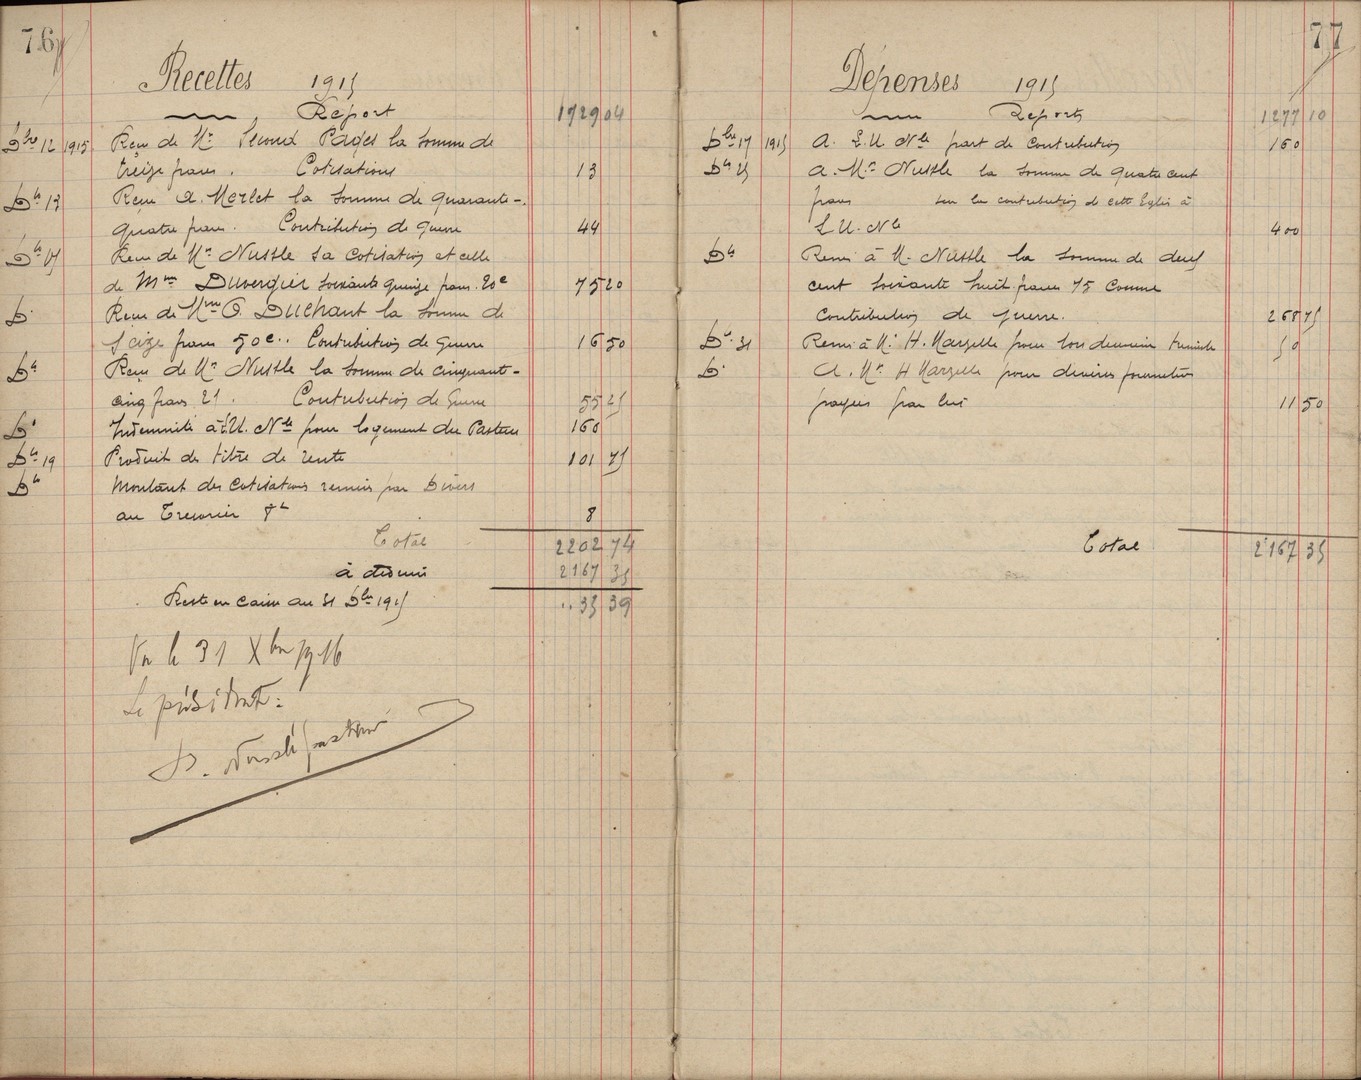 76
Recettes 1915
Report 1729 04
Dbre 12 1915 Reçu de Mr Second Pages la somme de
treize francs. Cotisations 13
Dto 13 Reçu A. Merlet la somme de quarante-
quatre francs. Contribution de Guerre 44
Dto 15 Reçu de Mr Nussle sa cotisation et celle
de Mme Duvergier soixante quinze francs 20c 75 20
Do Reçu de Mme O. Duchant la somme de
seize francs 50c.. Contribution de Guerre 16 50
Dto Reçu de Mr Nussle la somme de cinquante-
cinq francs 25. Contribution de Guerre 55 25
Do Indemnité à l'U. Nle pour logement du Pasteur 160
Dto 19 Produit de titre de rente 101 75
Dto Montant des cotisations remis par Divers
au Trésorier 8
Total 2202 74
à déduire 2167 35
Reste en caisse au 31 Dbre 1915 ..35 39
Vu le 31 Xbre 1916
Le président:
D. Nusslé pasteur
77
Dépenses 1915
Report 1277 10
Dbre 17 1915 A. L'U Nle part de Contribution 160
Dto 25 A. Mr Nussle la somme de quatre cent
francs sur la contribution de cette Eglise à
L'U. Nle 400
Dto Remis à M. Nussle la somme de deux
cent soixante huit francs 75 comme
contribution de guerre. 268 75
Dto 31 Remis à Mr H. Marzelle pour son dernier trimestre 50
Do A. Mr H Marzelle pour diverses fournitures
payées par lui 11 50
Total 2167 35